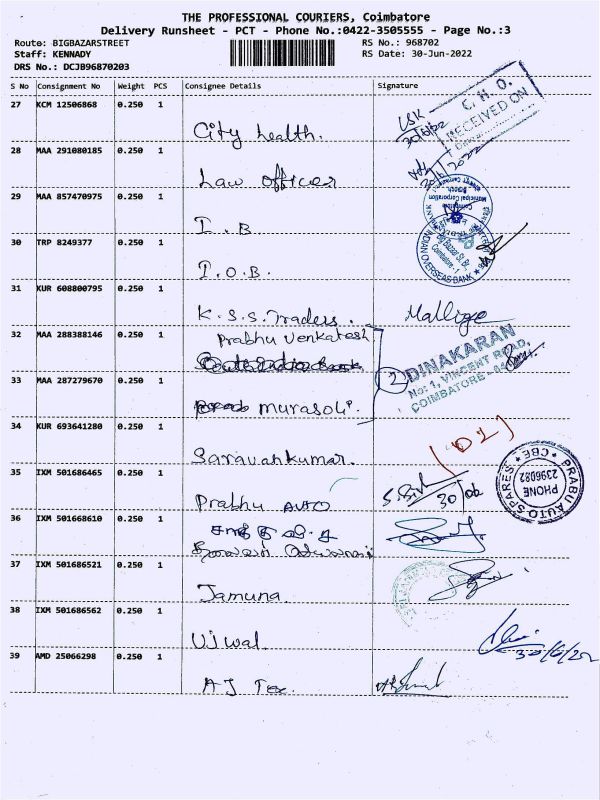 THE PROFESSIONAL COURIERS, Coimbatore
Delivery Runsheet - PCT - Phone No.:0422-3505555 - Page No.:3
Route: BIGBAZARSTREET RS No.: 968702
Staff: KENNADY RS Date: 30-Jun-2022
DRS No.: DCJB96870203
S No Consignment No Weight PCS Consignee Details Signature
27 KCM 12506868 0.250 1
City health.
30/6/22
C. H. O.
RECEIVED ON
28 MAA 291080185 0.250 1
Law officer
29 MAA 857470975 0.250 1
I. B
Coimbatore
Municipal Corporation
30 TRP 8249377 0.250 1
I.O.B.
INDIAN OVERSEAS BANK
Big Bazaar St. Br.
Coimbatore - 1
31 KUR 608800795 0.250 1
K.S.S. Traders.
32 MAA 288388146 0.250 1
Prabhu Venkatesh
2
DINAKARAN
No: 1, VINCENT ROAD,
COIMBATORE
33 MAA 287279670 0.250 1
murasoli.
34 KUR 693641280 0.250 1
Saravahkumar.
(DL)
35 IXM 501686465 0.250 1
Prabhu AUTO
30/06
PRABU AUTO SPARES ★ CBE
PHONE
2396082
36 IXM 501668610 0.250 1
37 IXM 501686521 0.250 1
Jamuna.
38 IXM 501686562 0.250 1
Ujwal.
30/6/22
39 AMD 25066298 0.250 1
AJ Tex